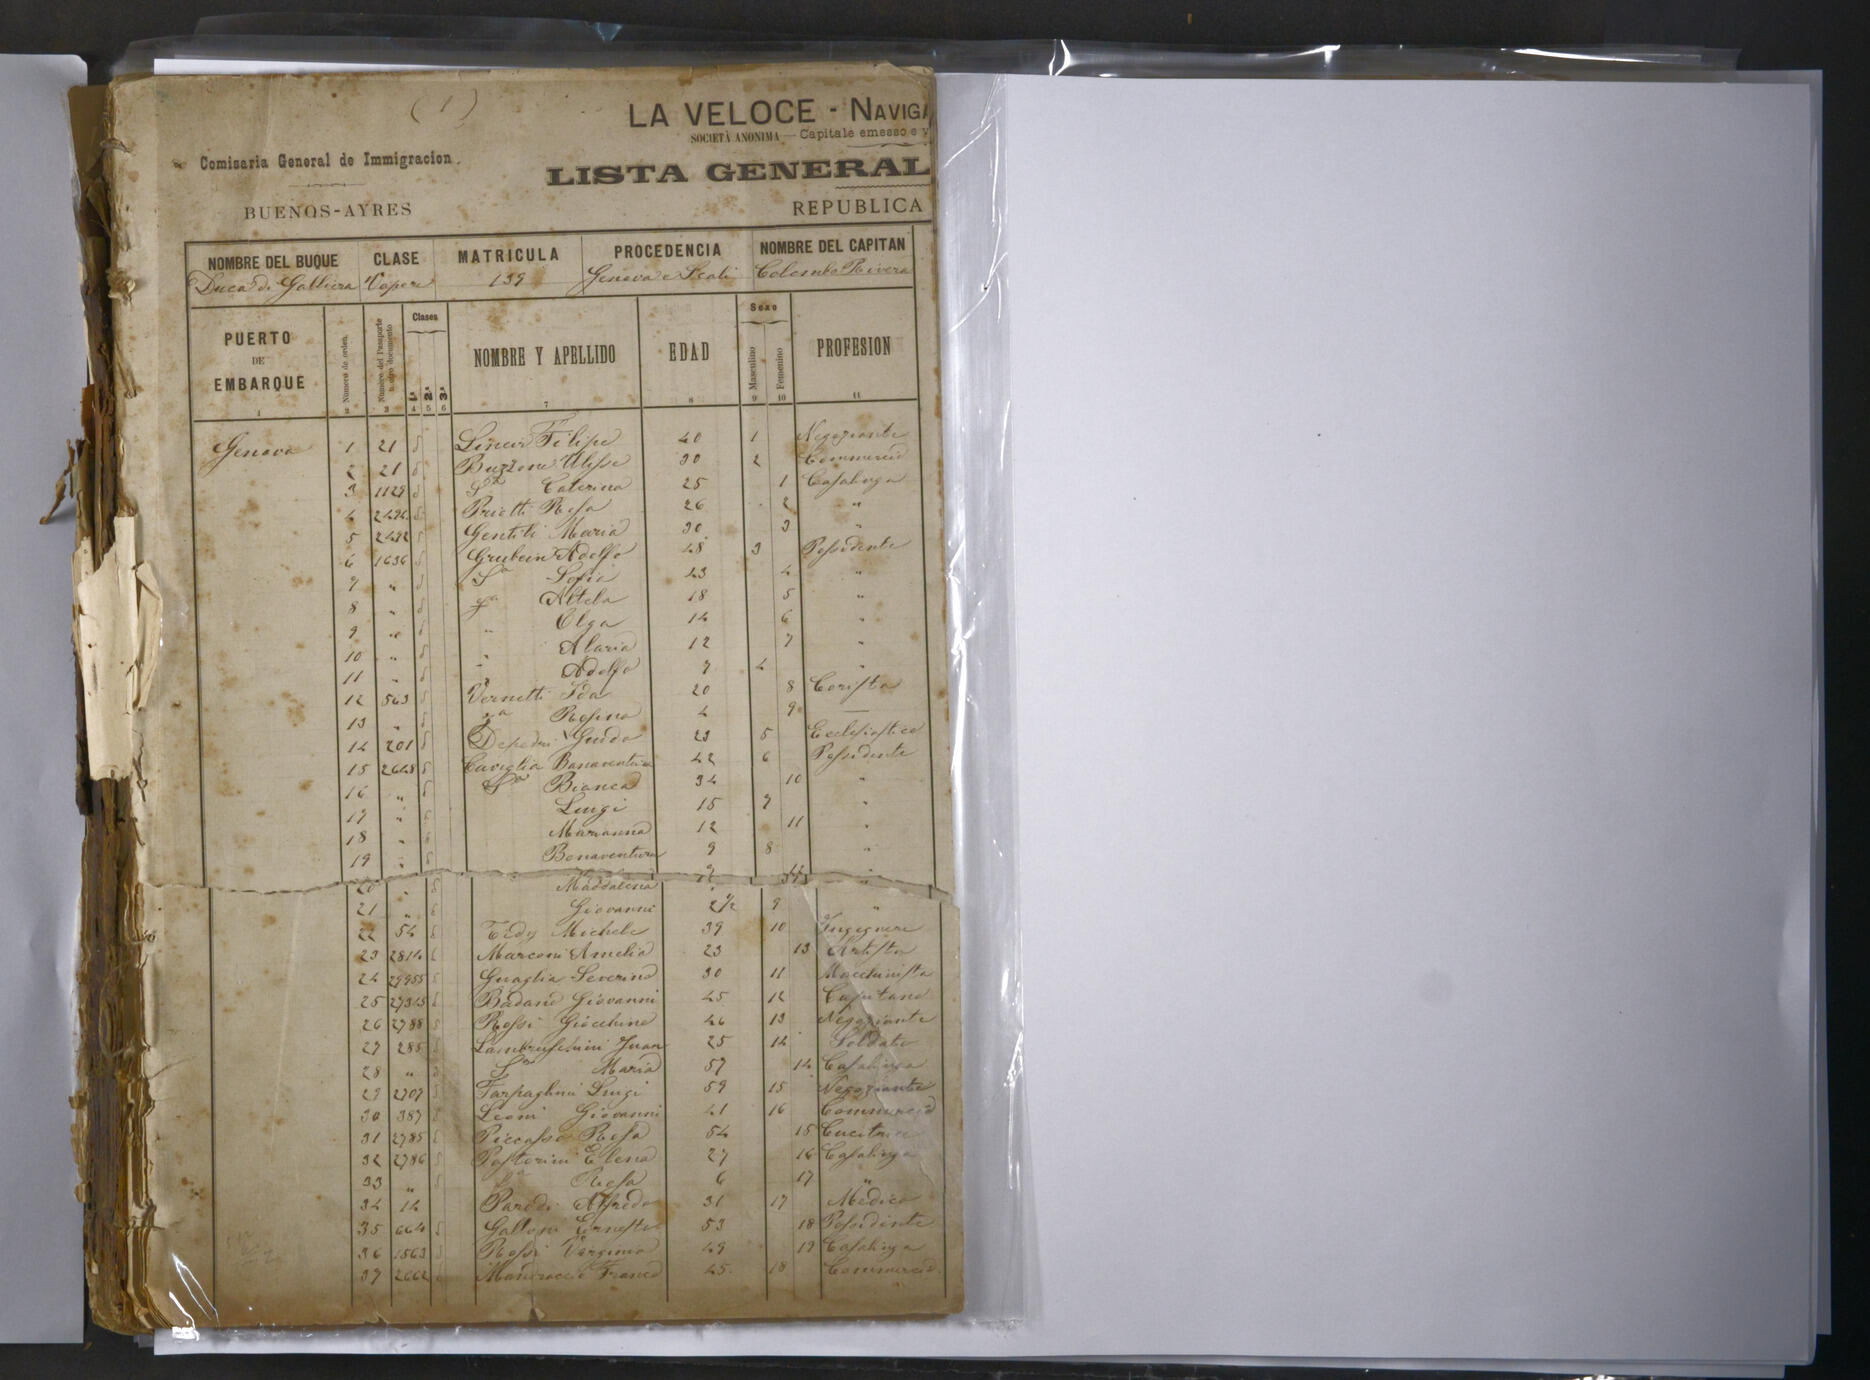 ( 1 )
LA VELOCE - NAVIGA
SOCIETÀ ANONIMA — Capitale emesso e v
Comisaria General de Immigracion.
LISTA GENERAL
BUENOS-AYRES
REPUBLICA
NOMBRE DEL BUQUE CLASE MATRICULA PROCEDENCIA NOMBRE DEL CAPITAN
Duca di Galliera Vapore 139 Genova e Scali Colombo Rivera
PUERTO DE EMBARQUE Numero de orden. Numero del Pasaporte u otro documento Clases 1ª 2ª 3ª NOMBRE Y APELLIDO EDAD Sexo Masculino Femenino PROFESION
1 2 3 4 5 6 7 8 9 10 11
Genova 1 21 Filipe 40 1 Negoziante
2 21 Ulisse 30 2 Commercio
3 1129 Caterina 25 1 Casalinga
4 Rosa 26 2 "
5 2492 Gentili Maria 30 3 "
6 1636 Adolfo 48 3 Possidente
7 " Sª Sofia 43 4 "
8 " 18 5 "
9 " " Olga 14 6 "
10 " " 12 7 "
11 " " Adolfo 7 4 "
12 563 Vernetti Ida 20 8 Corista
13 " Rosina 4 9 —
14 201 Guido 23 5 Ecclesiastico
15 2648 Caviglia Bonaventura 42 6 Possidente
16 " Sª Bianca 34 10 "
17 " Luigi 15 7 "
18 " Marianna 12 11 "
19 " Bonaventura 9 8 "
20 " Maddalena "
21 " Giovanni 2 1/2 9 "
22 54 Michele 39 10 Ingegnere
23 2814 Marconi Amelia 23 13 Artista
24 29955 Guaglia Severino 30 11 Macchinista
25 Badano Giovanni 45 12 Capitano
26 2788 Rossi Giocchino 46 13 Negoziante
27 285 Lambruschini Juan 25 14 Soldato
28 " Maria 57 14 Casalinga
29 2707 Luigi 59 15 Negoziante
30 387 Leoni Giovanni 41 16 Commercio
31 2785 Piccasso Rosa 54 15 Cucitrice
32 2786 Pastorini Elena 27 16 Casalinga
33 " Rosa 6 17 "
34 14 Parodi Alfredo 31 17 Medico
35 664 Galloni Ernesta 53 18 Possidente
36 1563 Rossi Virginia 49 19 Casalinga
37 2662 Franco 45 18 Commercio